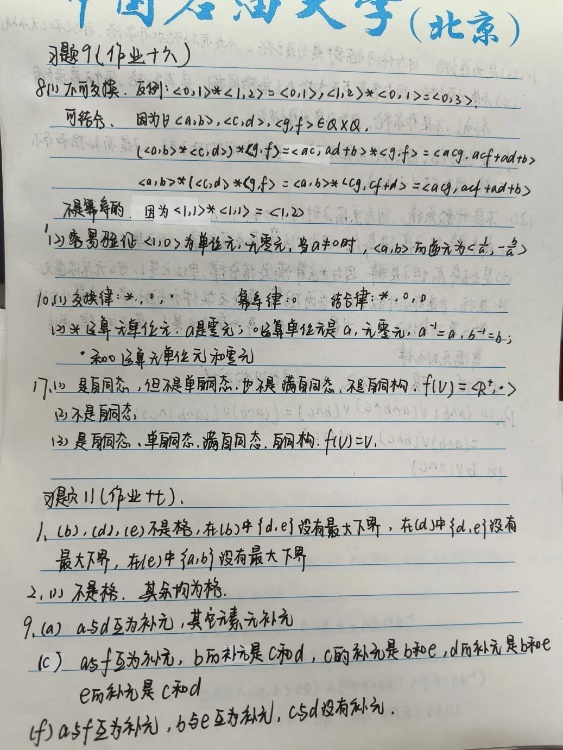 中国石油大学(北京)
习题9(作业十六)
8(1) 不可交换. 反例:<0,1>*<1,2>=<0,1>,<1,2>*<0,1>=<0,3>.
可结合. 因为∀<a,b>,<c,d>,<g,f>∈Q×Q,
(<a,b>*<c,d>)*<g,f>=<ac,ad+b>*<g,f>=<acg,acf+ad+b>
<a,b>*(<c,d>*<g,f>)=<a,b>*<cg,cf+d>=<acg,acf+ad+b>
不是幂等的. 因为<1,1>*<1,1>=<1,2>
(2) 容易验证<1,0>为单位元,无零元,当a≠0时,<a,b>的逆元为<1/a,-b/a>
10.(1) 交换律:*,∘,· 幂等律:∘ 结合律:*,∘,□
(2) *运算无单位元,a是零元;∘运算单位元是a,无零元,a⁻¹=a,b⁻¹=b;
·和□运算无单位元和零元
17.(1) 是自同态,但不是单自同态,也不是满自同态,不是自同构.f(V)=<R⁺,·>
(2) 不是自同态.
(3) 是自同态、单自同态、满自同态、自同构.f(V)=V.
习题11(作业十七).
1. (b),(d),(e)不是格,在(b)中{d,e}没有最大下界,在(d)中{d,e}没有
最大下界,在(e)中{a,b}没有最大下界
2.(1) 不是格. 其余均为格.
9.(a) a与d互为补元,其它元素无补元
(c) a与f互为补元,b的补元是c和d,c的补元是b和e,d的补元是b和e
e的补元是c和d
(f) a与f互为补元,b与e互为补元,c与d没有补元.